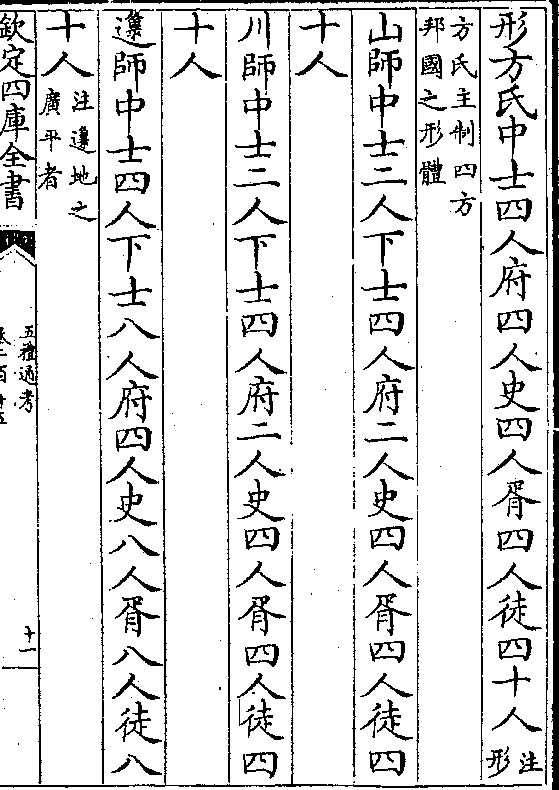 形方氏中士四人府四人史四人胥四人徒四十人注形
方氏主制四方
邦國之形體
山師中士二人下士四人府二人史四人胥四人徒四
十人
川師中士二人下士四人府二人史四人胥四人徒四
十人
邍師中士四人下士八人府四人史八人胥八人徒八
十人注邍地之
廣平者
欽定四庫全書
五禮通考
十一